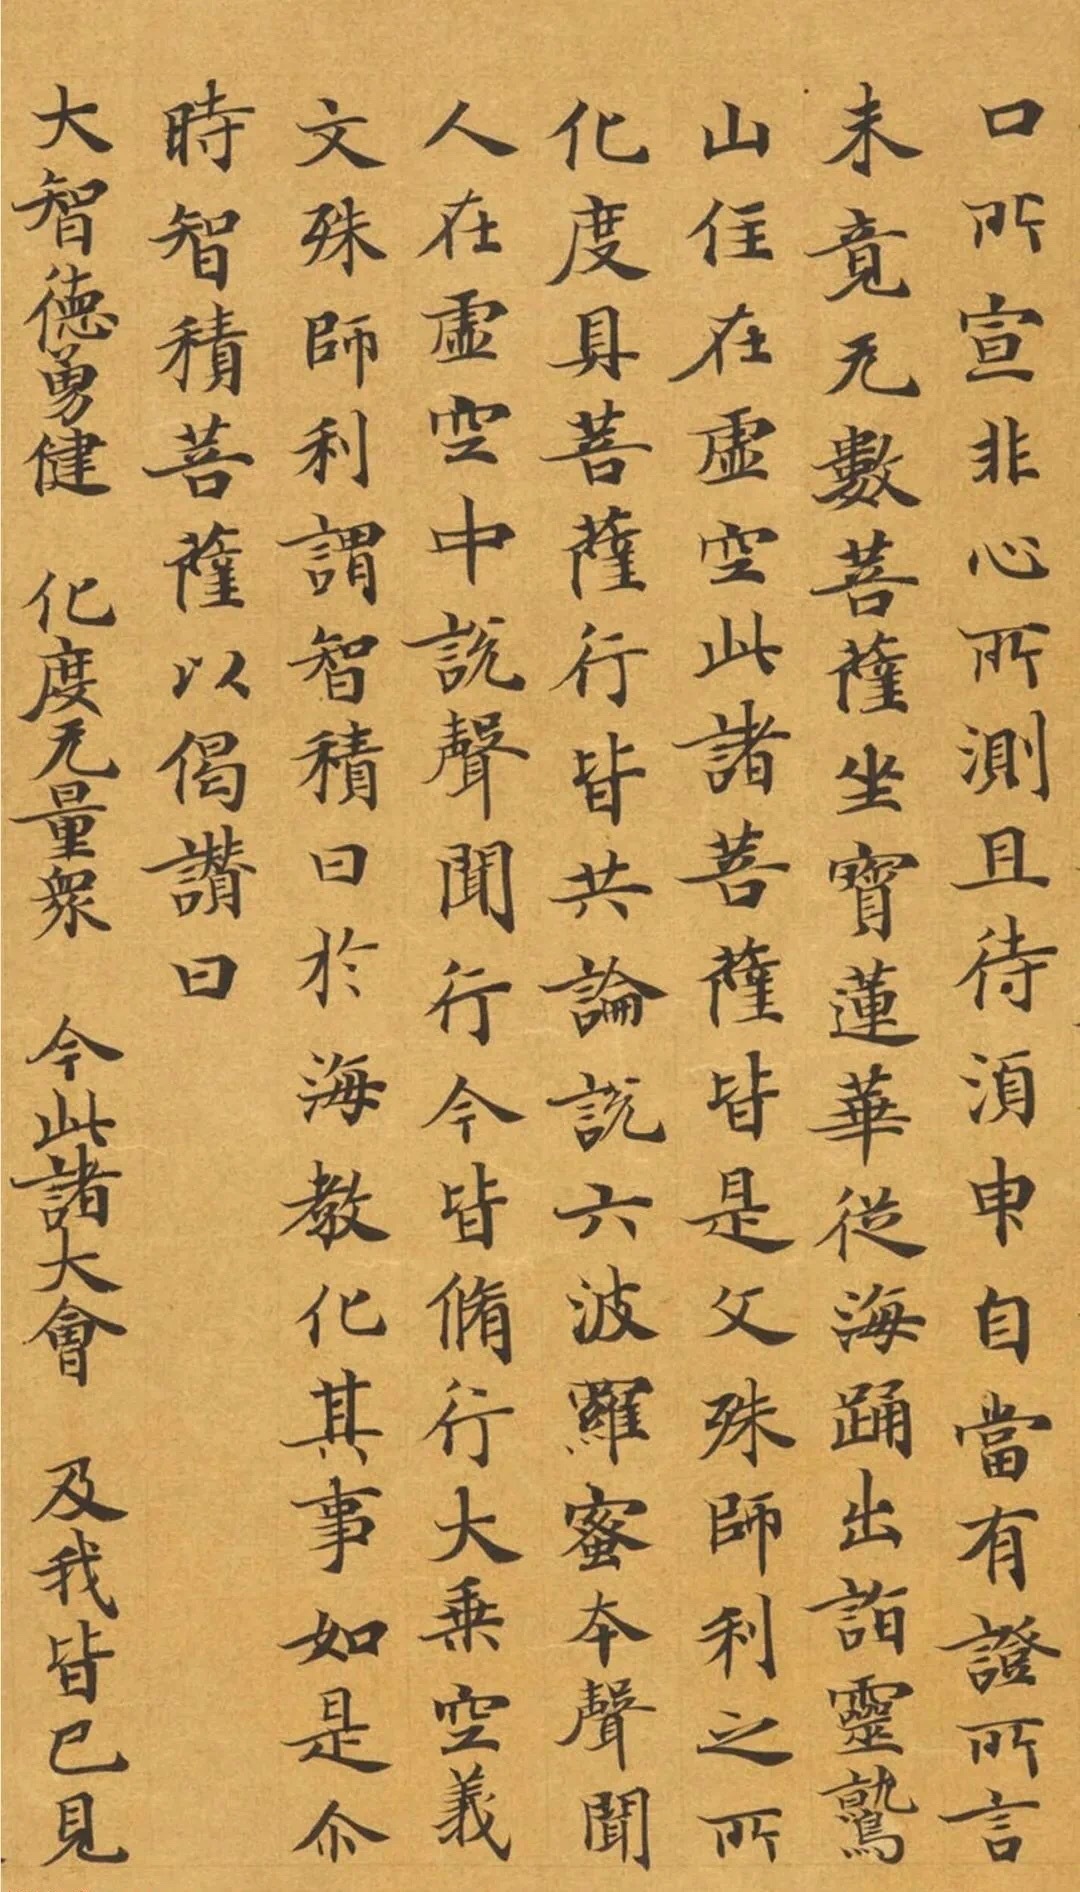 口所宣非心所測且待須申自當有證所言
未竟无數菩薩坐寶蓮華從海踊出詣靈鷲
山住在虛空此諸菩薩皆是文殊師利之所
化度具菩薩行皆共論說六波羅蜜本聲聞
人在虛空中說聲聞行今皆脩行大乗空義
文殊師利謂智積曰於海教化其事如是尒
時智積菩薩以偈讚曰
大智德勇健 化度无量衆 今此諸大會 及我皆已見